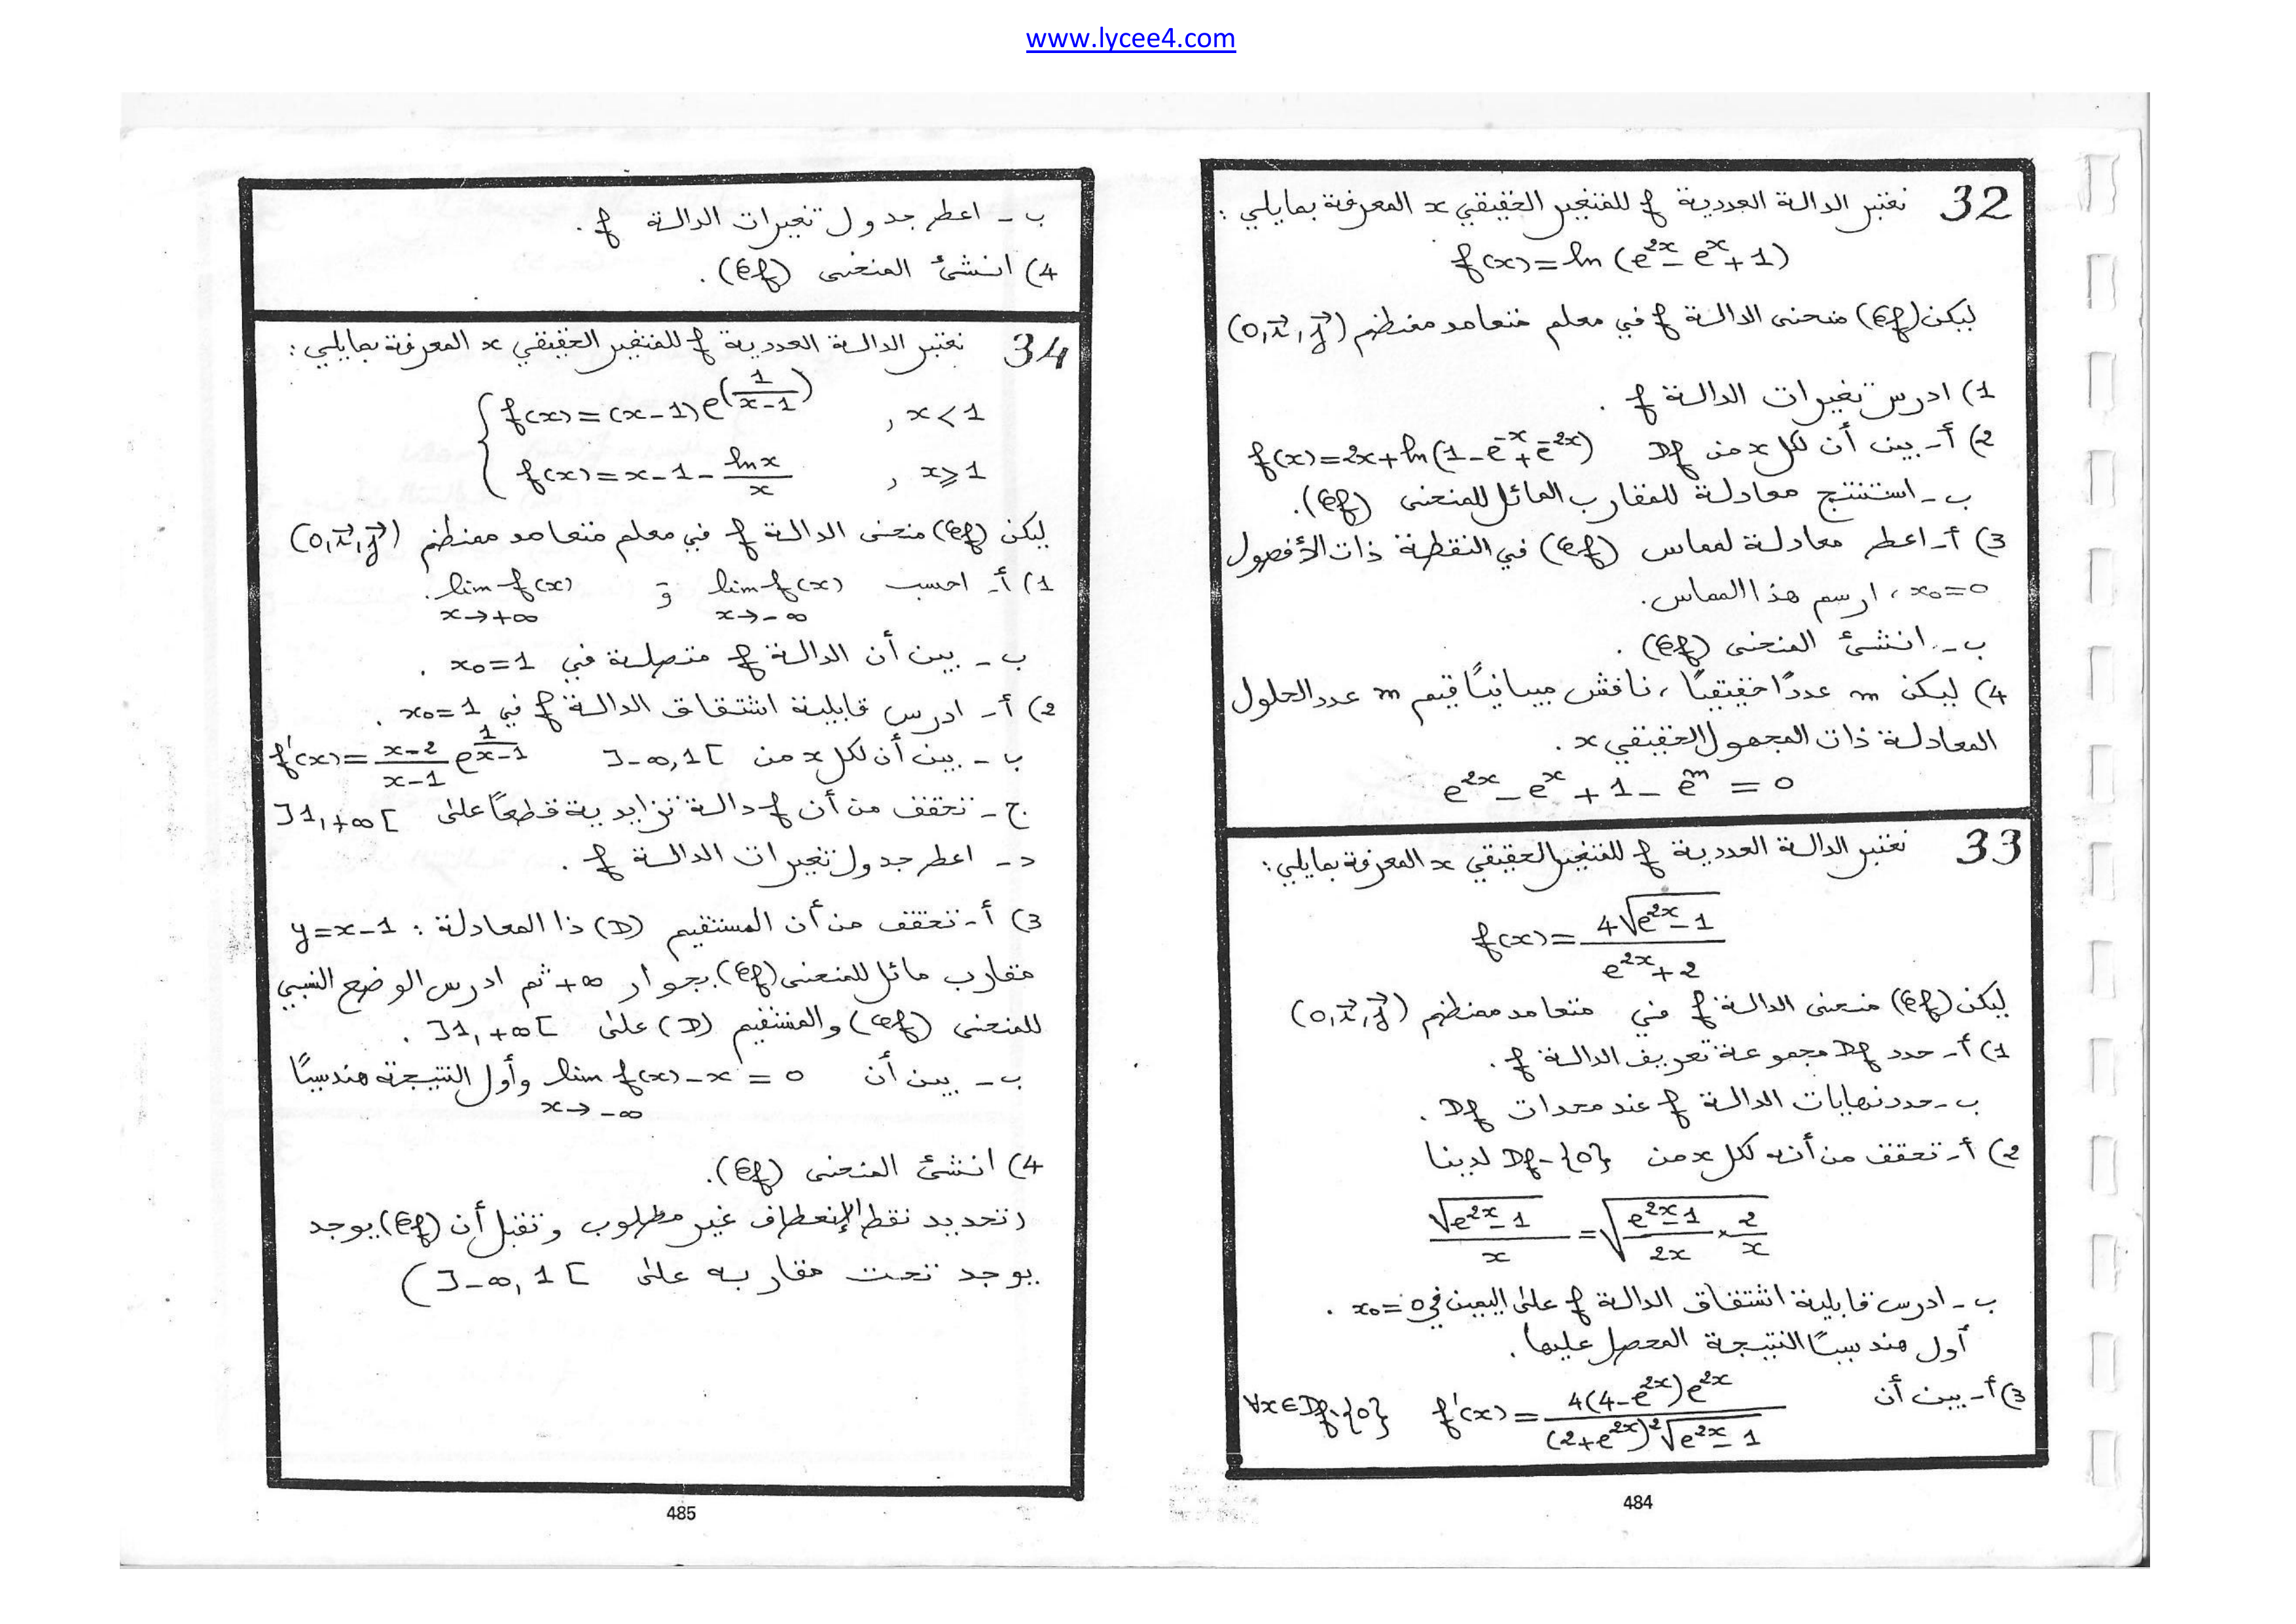 www.lycee4.com
32 نعتبر الدالة العددية f للمتغير الحقيقي x المعرفة بمايلي :
f(x)=ln(e^{2x}-e^x+1)
ليكن (Cf) منحنى الدالة f في معلم متعامد ممنظم (O,i⃗,j⃗)
1) ادرس تغيرات الدالة f .
2) أ- بين أن لكل x من Df f(x)=2x+ln(1-e^{-x}+e^{-2x})
ب- استنتج معادلة للمقارب المائل للمنحنى (Cf).
3) أ- اعط معادلة لمماس (Cf) في النقطة ذات الأفصول
x₀=0 ، ارسم هذا المماس.
ب- انشئ المنحنى (Cf) .
4) ليكن m عددًا حقيقيًا ، ناقش مبيانيًا قيم m عدد الحلول
المعادلة ذات المجهول الحقيقي x .
e^{2x}-e^x+1-e^m=0
33 نعتبر الدالة العددية f للمتغير الحقيقي x المعرفة بمايلي:
f(x)=\frac{4\sqrt{e^{2x}-1}}{e^{2x}+2}
ليكن (Cf) منحنى الدالة f في متعامد ممنظم (O,i⃗,j⃗)
1) أ- حدد Df مجموعة تعريف الدالة f .
ب- حدد نهايات الدالة f عند محدات Df .
2) أ- تحقق من أنه لكل x من Df-{0} لدينا
\frac{\sqrt{e^{2x}-1}}{x}=\sqrt{\frac{e^{2x}-1}{2x}×\frac{2}{x}}
ب- ادرس قابلية اشتقاق الدالة f على اليمين في x₀=0 .
أول هندسيًا النتيجة المحصل عليها .
3) أ- بين أن f'(x)=\frac{4(4-e^{2x})e^{2x}}{(2+e^{2x})^2\sqrt{e^{2x}-1}} ∀x∈Df-{0}
484
ب- اعط جدول تغيرات الدالة f .
4) انشئ المنحنى (Cf) .
34 نعتبر الدالة العددية f للمتغير الحقيقي x المعرفة بمايلي :
f(x)=(x-1)e^{(\frac{1}{x-1})} , x<1
f(x)=x-1-\frac{ln x}{x} , x⩾1
ليكن (Cf) منحنى الدالة f في معلم متعامد ممنظم (O,i⃗,j⃗)
1) أ- احسب lim f(x) x→-∞ و lim f(x) x→+∞ .
ب- بين أن الدالة f متصلة في x₀=1 .
2) أ- ادرس قابلية اشتقاق الدالة f في x₀=1 .
ب- بين أن لكل x من ]-∞,1[ f'(x)=\frac{x-2}{x-1}e^{\frac{1}{x-1}}
ج- تحقق من أن f دالة تزايدية قطعًا على ]1,+∞[
د- اعط جدول تغيرات الدالة f .
3) أ- تحقق من أن المستقيم (D) ذا المعادلة : y=x-1
مقارب مائل للمنحنى (Cf) بجوار +∞ ثم ادرس الوضع النسبي
للمنحنى (Cf) والمستقيم (D) على ]1,+∞[ .
ب- بين أن lim f(x)-x=0 x→-∞ وأول النتيجة هندسيًا
4) انشئ المنحنى (Cf).
(تحديد نقط الإنعطاف غير مطلوب ونقبل أن (Cf) يوجد
يوجد تحت مقاربه على ]-∞,1[ )
485